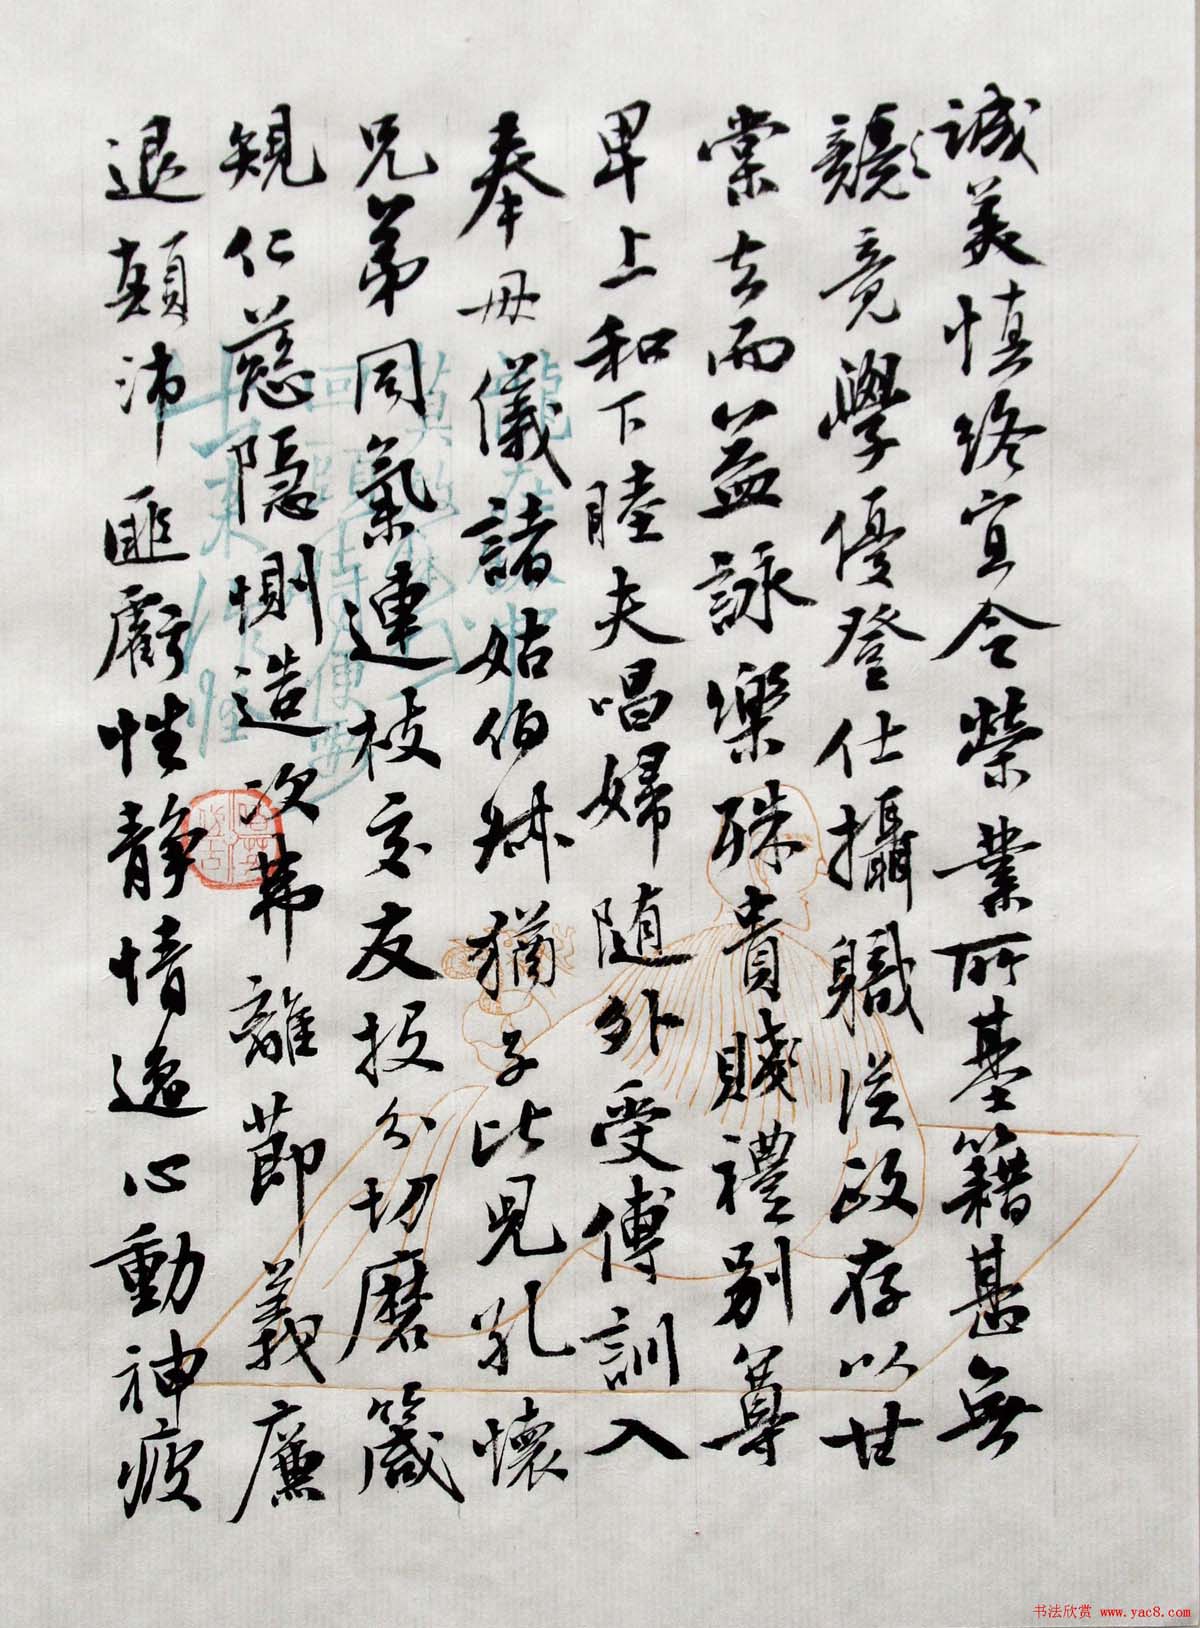 誠美慎終宜令榮業所基籍甚無
競竟學優登仕攝職從政存以甘
棠去而益詠樂殊貴賤禮別尊
卑上和下睦夫唱婦随外受傅訓入
奉母儀諸姑伯叔猶子比兒孔懷
兄弟同氣連枝交友投分切磨箴
規仁慈隱惻造次弗離節義廉
退顛沛匪虧性静情逸心動神疲
书法欣赏 www.yac8.com